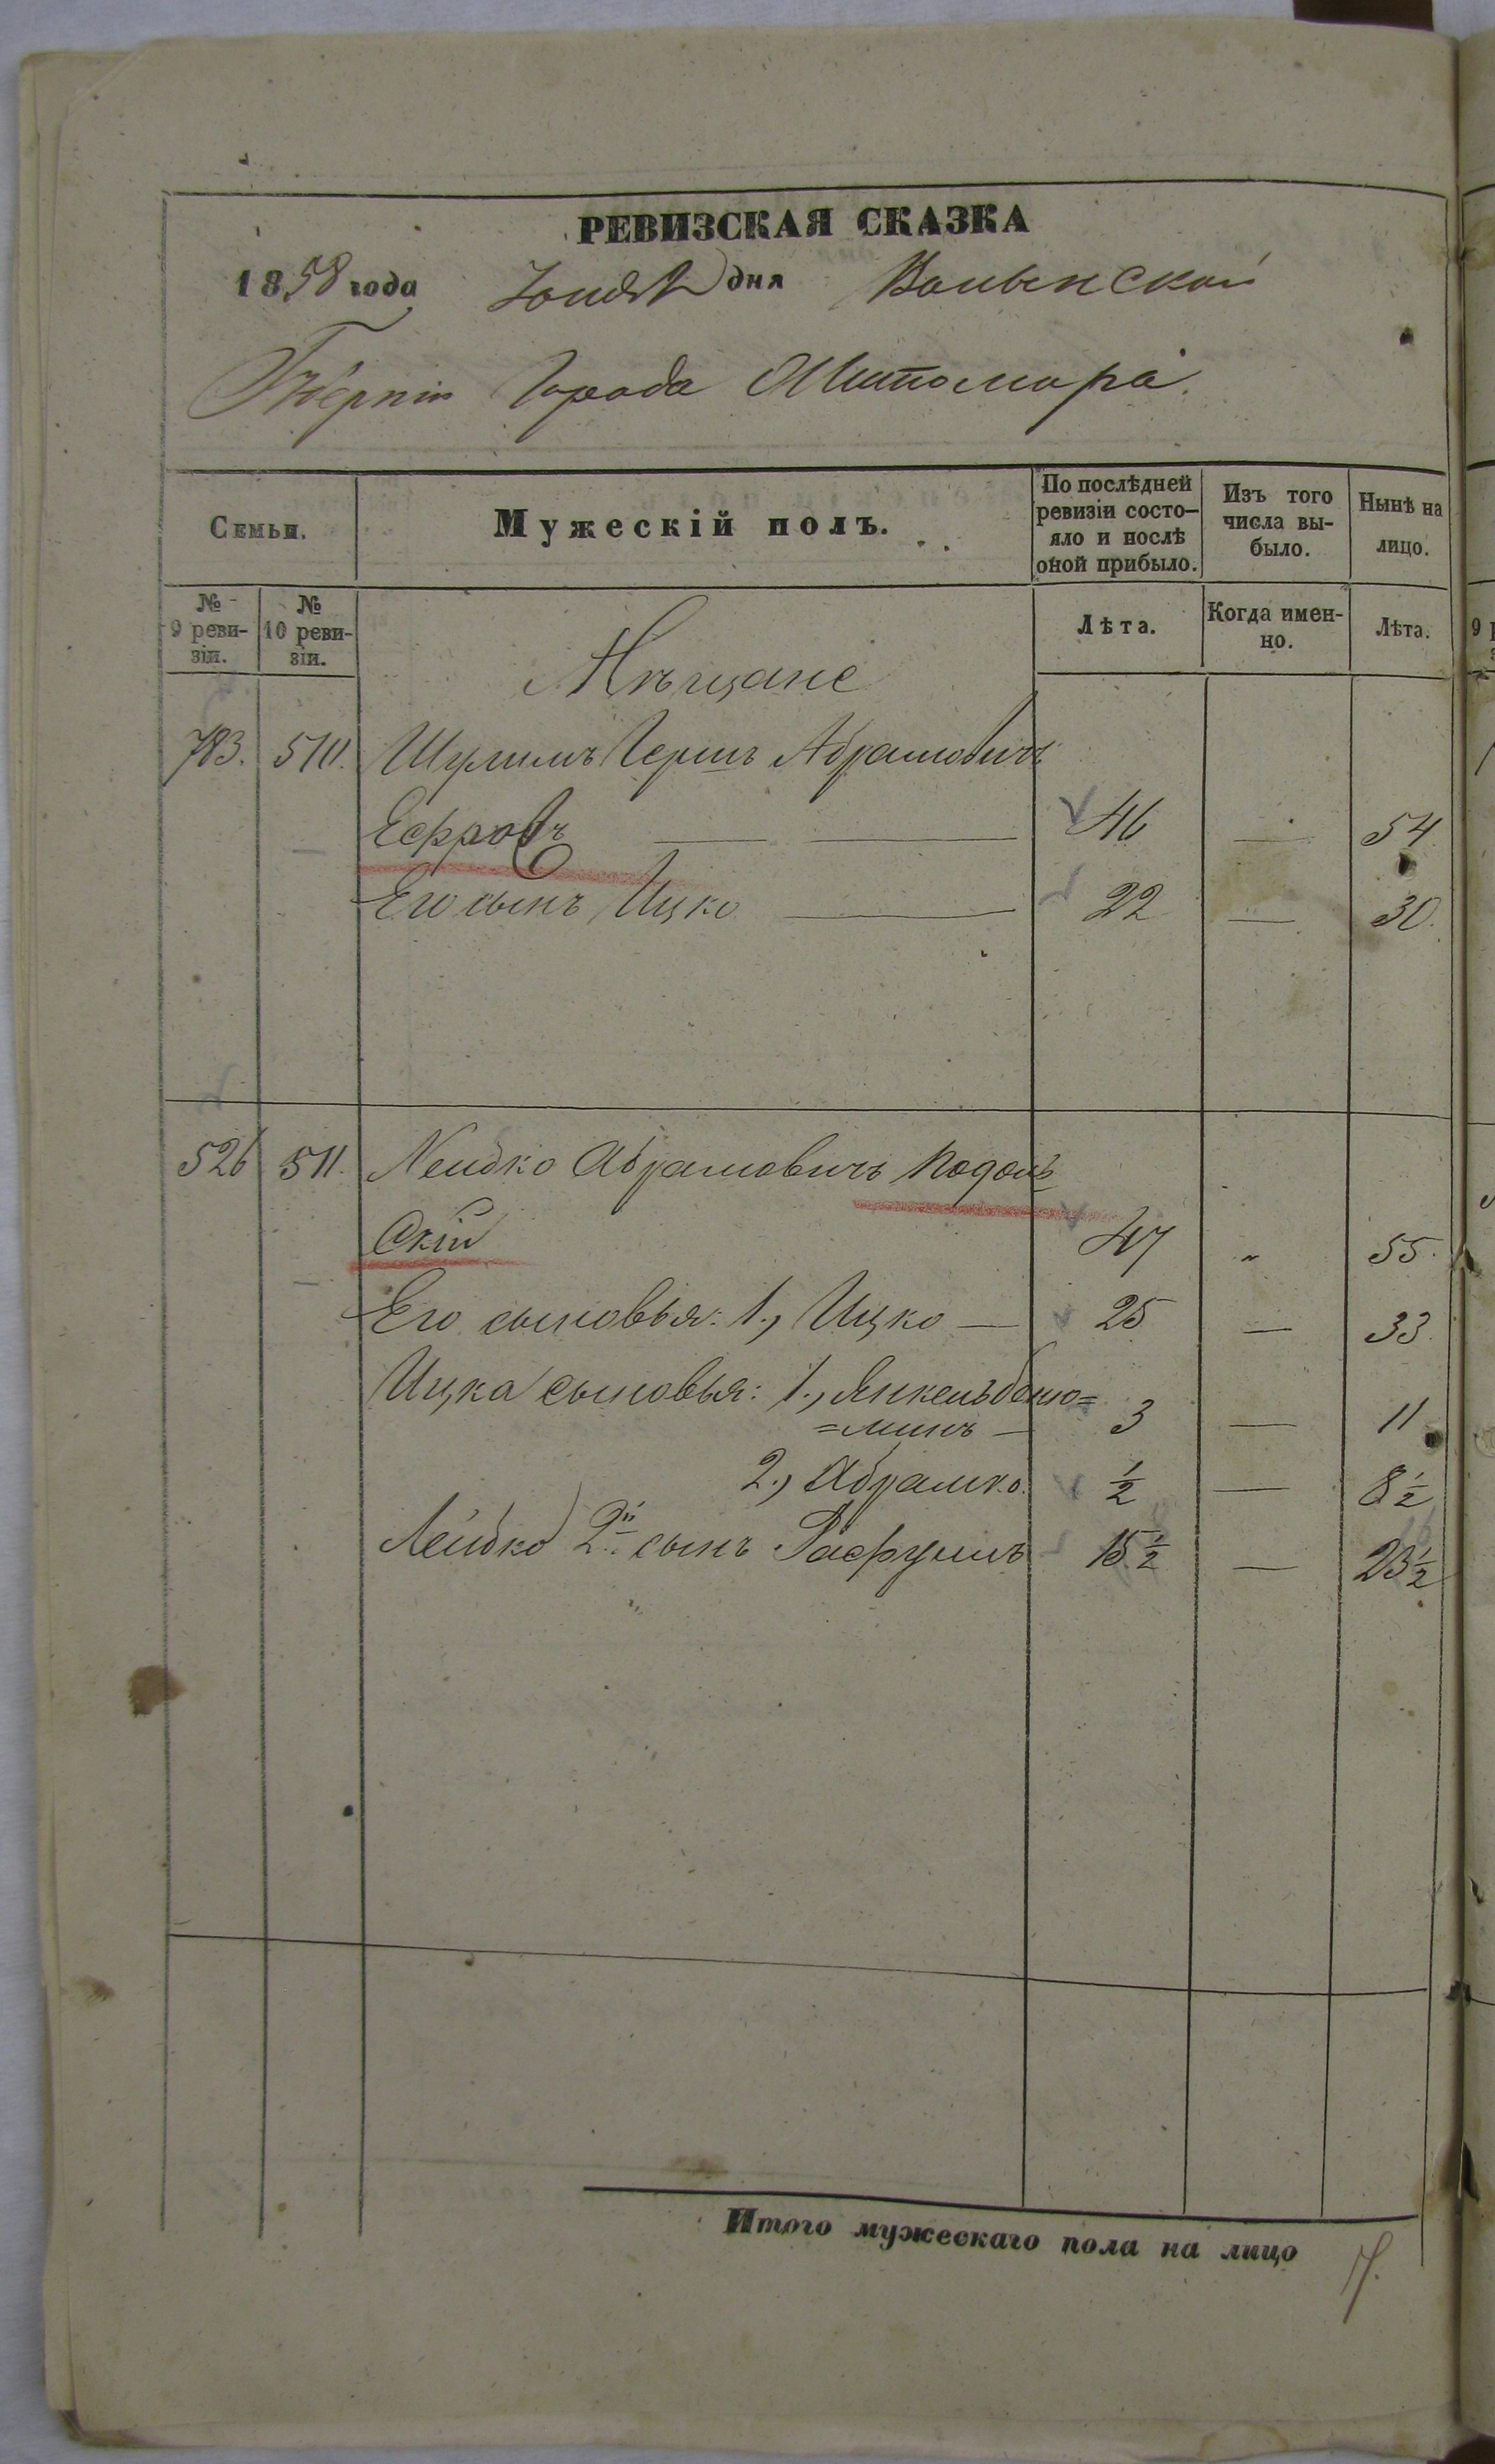 РЕВИЗСКАЯ СКАЗКА
1858 года Іюня дня Волынской
Губерніи Города Житомира.
Семьи.
Мужескій полъ.
По послѣдней ревизіи состо-
яло и послѣ оной прибыло.
Изъ того числа вы-
было.
Нынѣ на лицо.
№ 9 реви-
зіи.
№ 10 реви-
зіи.
Лѣта.
Когда имен-
но.
Лѣта.
Мѣщане
783. 510. Шулимъ Гершъ Абрамовичъ
46 — 54
Его сынъ Ицко — 22 — 30.
526 511. Лейбко Абрамовичъ Подоль
скій 47 " 55.
Его сыновья: 1., Ицко — 25 — 33.
Ицка сыновья: 1., Янкель Беню=
=минъ — 3 — 11
2., Абрамко. ½ — 8½
Лейбко 2й сынъ 15½ — 23½
Итого мужескаго пола на лицо 7.